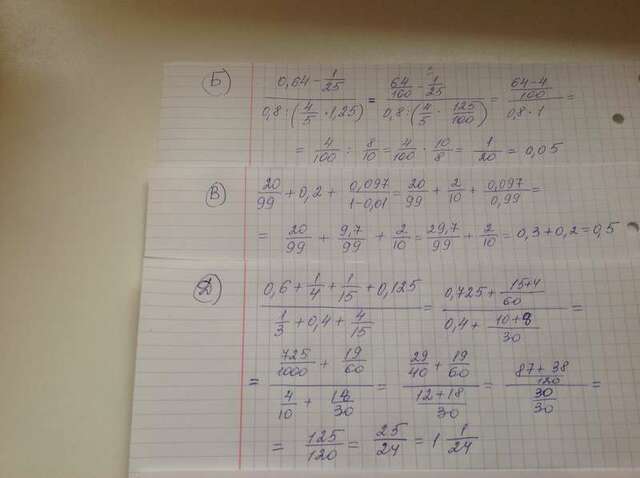 Б) (0,64 - 1/25) / (0,8 : (4/5 · 1,25)) = (64/100 - 1/25) / (0,8 : (4/5 · 125/100)) = ((64-4)/100) / (0,8 · 1) =
= 4/100 : 8/10 = 4/100 · 10/8 = 1/20 = 0,05
В) 20/99 + 0,2 + 0,097/(1-0,01) = 20/99 + 2/10 + 0,097/0,99 =
= 20/99 + 9,7/99 + 2/10 = 29,7/99 + 2/10 = 0,3 + 0,2 = 0,5
Д) (0,6 + 1/4 + 1/15 + 0,125) / (1/3 + 0,4 + 4/15) = (0,725 + (15+4)/60) / (0,4 + (10+8)/30) =
= (725/1000 + 19/60) / (4/10 + 18/30) = (29/40 + 19/60) / ((12+18)/30) = ((87+38)/120) / (30/30) =
= 125/120 = 25/24 = 1 1/24